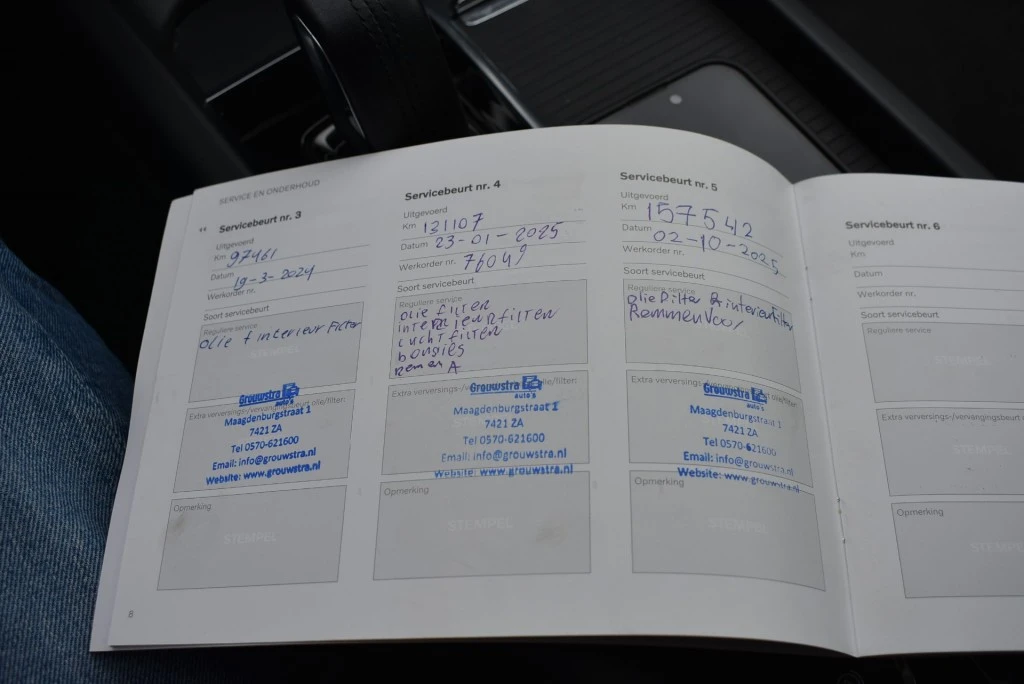 SERVICE EN ONDERHOUD
Servicebeurt nr. 3
Uitgevoerd
Km 97461
Datum 19-3-2024
Werkorder nr.
Soort servicebeurt
Reguliere service
olie + interieur Filter
STEMPEL
Extra verversings-/vervangingsbeurt olie/filter:
Grouwstra
auto's
Maagdenburgstraat 1
7421 ZA
Tel 0570-621600
Email: info@grouwstra.nl
Website: www.grouwstra.nl
Opmerking
STEMPEL
6
Servicebeurt nr. 4
Uitgevoerd
Km 131107
Datum 23-01-2025
Werkorder nr. 76049
Soort servicebeurt
Reguliere service
olie filter
interieur filter
lucht filter
bougies
remen A
Extra verversings-/vervangingsbeurt olie/filter:
Grouwstra
auto's
Maagdenburgstraat 1
7421 ZA
Tel 0570-621600
Email: info@grouwstra.nl
Website: www.grouwstra.nl
Opmerking
STEMPEL
Servicebeurt nr. 5
Uitgevoerd
Km 157542
Datum 02-10-2025
Werkorder nr.
Soort servicebeurt
Reguliere service
olie Filter & interieurfilter
Remmen Voor
Extra verversings-/vervangingsbeurt olie/filter:
Grouwstra
auto's
Maagdenburgstraat 1
7421 ZA
Tel 0570-621600
Email: info@grouwstra.nl
Website: www.grouwstra.nl
Opmerking
STEMPEL
Servicebeurt nr. 6
Uitgevoerd
Km
Datum
Werkorder nr.
Soort servicebeurt
Reguliere service
STEMPEL
Extra verversings-/vervangingsbeurt
STEMPEL
Opmerking
STEMPEL